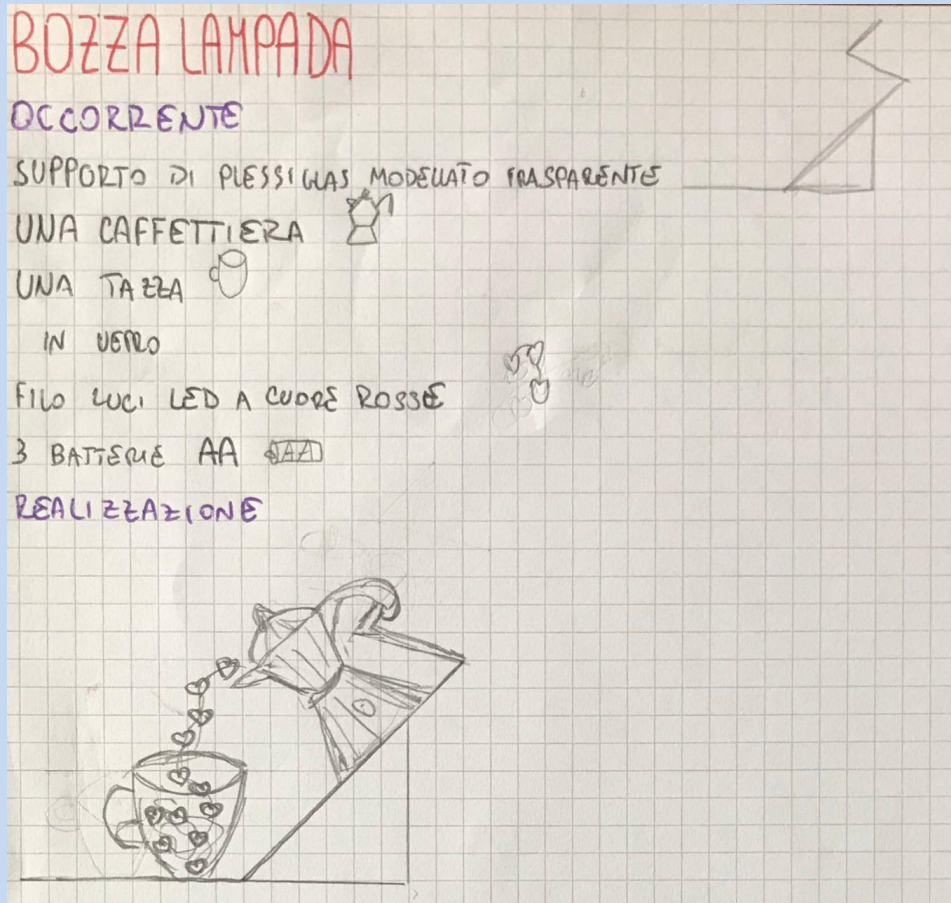 BOZZA LAMPADA
OCCORRENTE
SUPPORTO DI PLESSIGLAS MODELLATO TRASPARENTE
UNA CAFFETTIERA
UNA TAZZA
IN VETRO
FILO LUCI LED A CUORE ROSSE
3 BATTERIE AA AA
REALIZZAZIONE